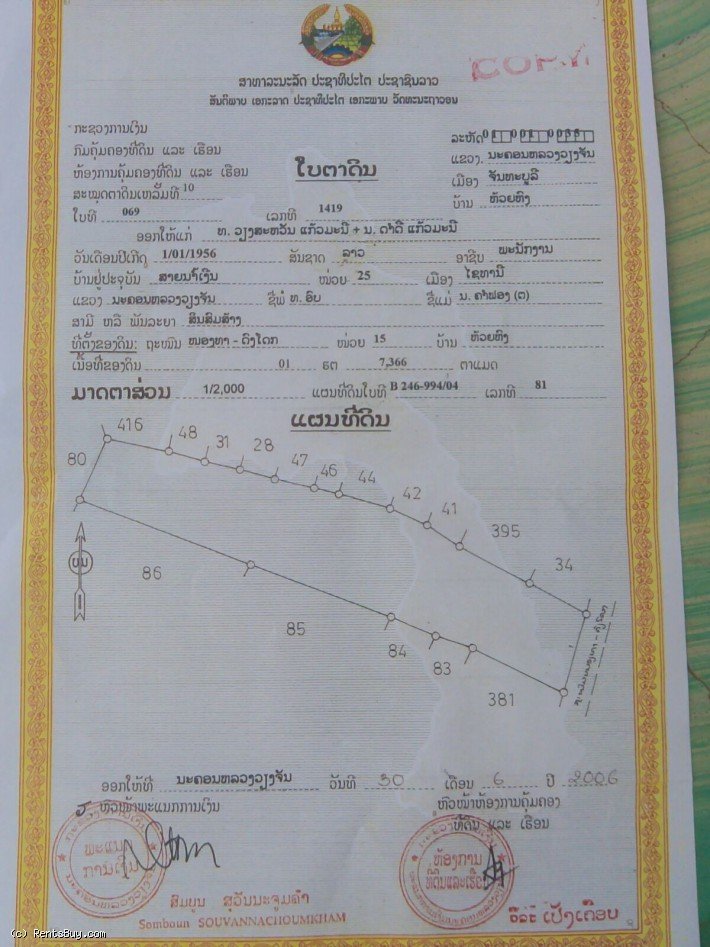 COPY
ສາທາລະນະລັດ ປະຊາທິປະໄຕ ປະຊາຊົນລາວ
ສັນຕິພາບ ເອກະລາດ ປະຊາທິປະໄຕ ເອກະພາບ ວັດທະນະຖາວອນ
ກະຊວງການເງິນ
ກົມຄຸ້ມຄອງທີ່ດິນ ແລະ ເຮືອນ
ຫ້ອງການຄຸ້ມຄອງທີ່ດິນ ແລະ ເຮືອນ
ສະໝຸດຕາດິນເຫລັ້ມທີ 10
ໃບຕາດິນ
ລະຫັດ 01 001 0055
ແຂວງ ນະຄອນຫລວງວຽງຈັນ
ເມືອງ ຈັນທະບູລີ
ບ້ານ ຫ້ວຍຫົງ
ໃບທີ 069 ເລກທີ 1419
ອອກໃຫ້ແກ່ ທ. ວຽງສະຫວັນ ແກ້ວມະນີ + ນ. ດາດີ ແກ້ວມະນີ
ວັນເດືອນປີເກີດ 1/01/1956 ສັນຊາດ ລາວ ອາຊີບ ພະນັກງານ
ບ້ານຢູ່ປະຈຸບັນ ສາຍນ້ຳເງິນ ໜ່ວຍ 25 ເມືອງ ໄຊທານີ
ແຂວງ ນະຄອນຫລວງວຽງຈັນ ຊື່ພໍ່ ທ. ອິບ ຊື່ແມ່ ນ. ຄຳຟອງ (ຕ)
ສາມີ ຫລື ພັນລະຍາ ສິນສົມສ້າງ
ທີ່ຕັ້ງຂອງດິນ: ຖະໜົນ ໜອງທາ - ດົງໂດກ ໜ່ວຍ 15 ບ້ານ ຫ້ວຍຫົງ
ເນື້ອທີ່ຂອງດິນ 01 ຮຕ 7,366 ຕາແມດ
ມາດຕາສ່ວນ 1/2,000 ແຜນທີ່ດິນໃບທີ B 246-994/04 ເລກທີ 81
ແຜນທີ່ດິນ
416 48 31 28 47 46 44 42 41 395 34
80
ບນ
86 85 84 83 381
ອອກໃຫ້ທີ່ ນະຄອນຫລວງວຽງຈັນ ວັນທີ 30 ເດືອນ 6 ປີ 2006
ຫົວໜ້າພະແນກການເງິນ
ຫົວໜ້າຫ້ອງການຄຸ້ມຄອງ
ທີ່ດິນ ແລະ ເຮືອນ
ພະແນກ
ການເງິນ
ຫ້ອງການ
ທີ່ດິນແລະເຮືອນ
ສົມບູນ ສຸວັນນະຈູມຄຳ
Somboun SOUVANNACHOUMKHAM
(c) RentsBuy.com